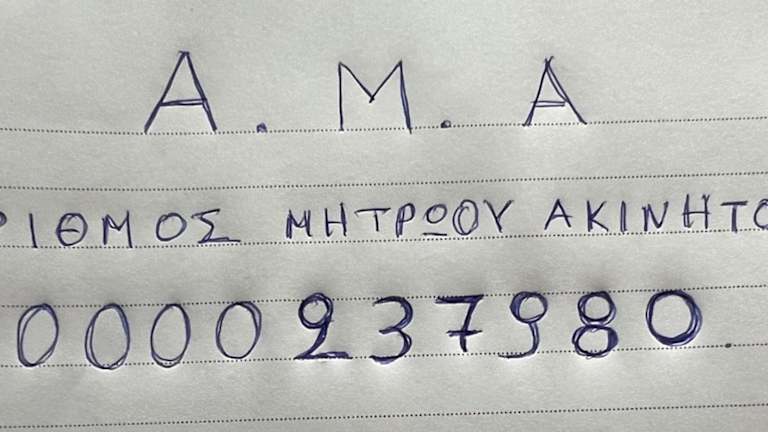 Α.Μ.Α
ΡΙΘΜΟΣ ΜΗΤΡΩΟΥ ΑΚΙΝΗΤΟ
0000237980.